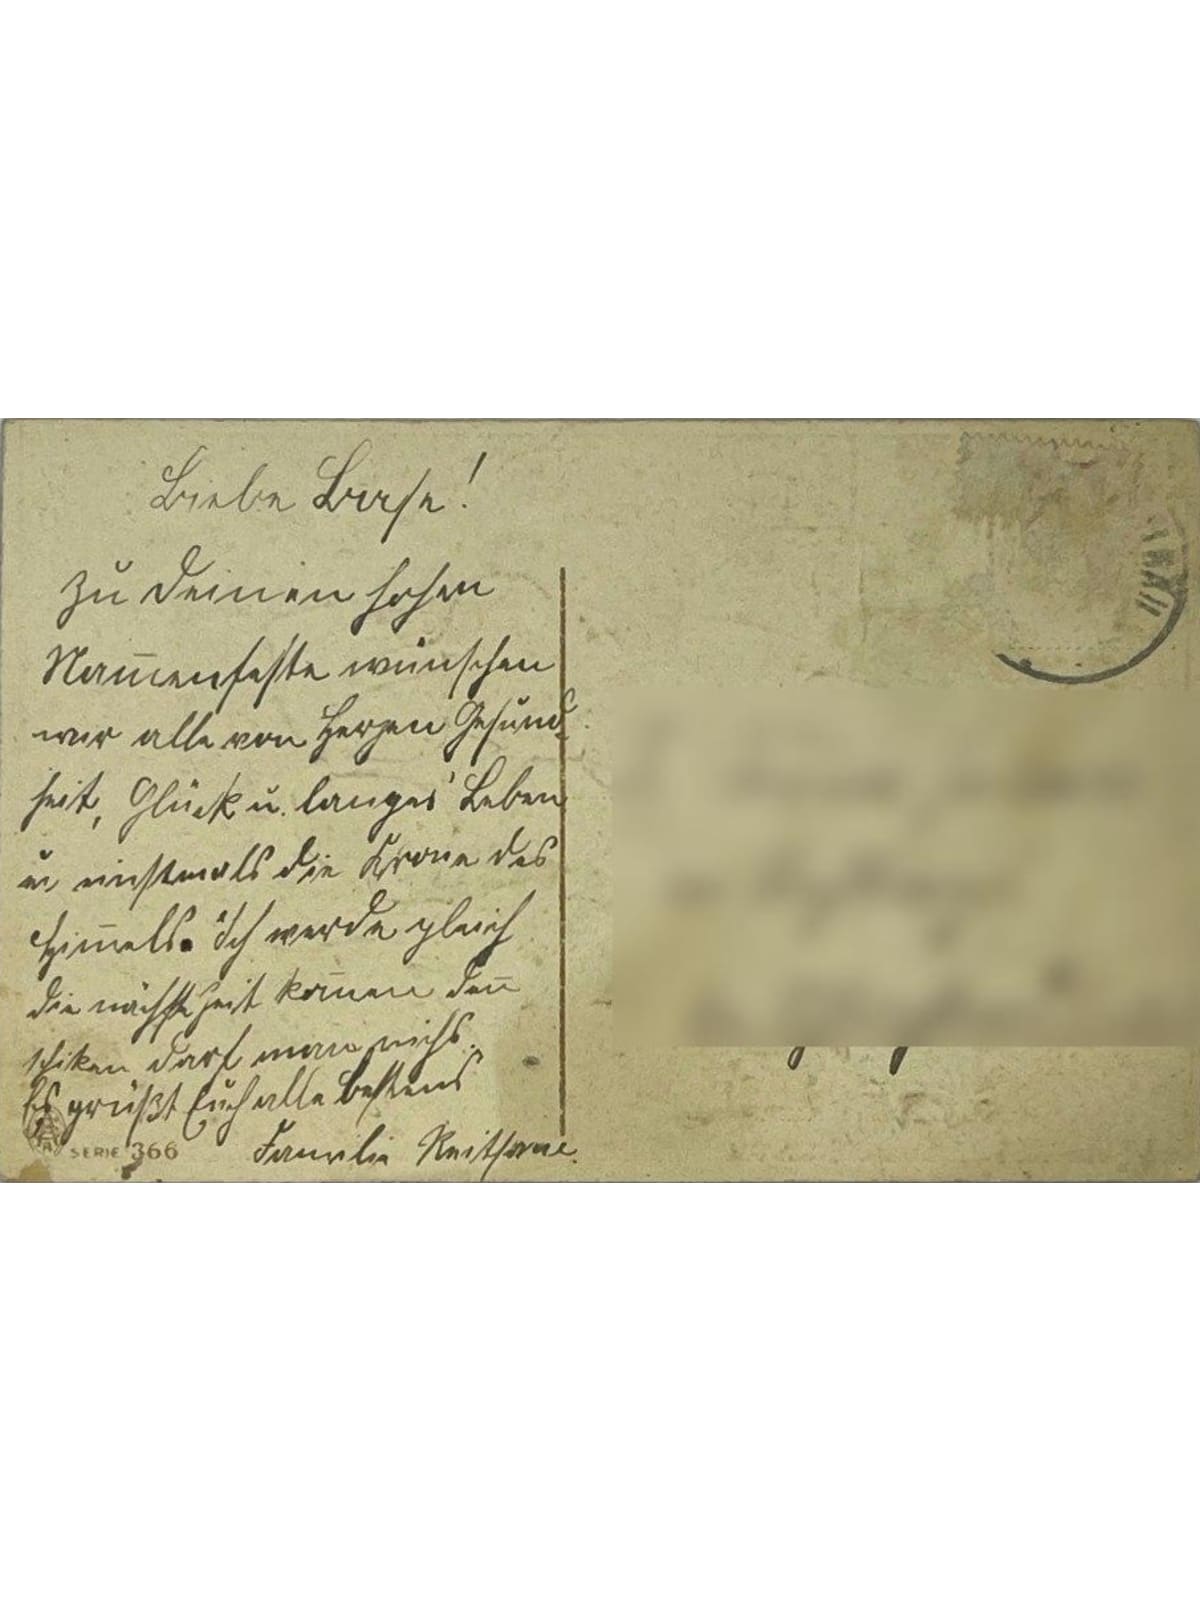 Liebe Base!
Zu Deinen hohen
Nam̅enfeste wünschen
wir alle von Herzen Gesund-
heit, Glück u. langes Leben
u einstmals die Krone des
Him̅els. Ich werde gleich
die nächste Zeit kom̅en den̅
schiken darf man nichs.
Es grüßt Euch alle bestens
Familie
SERIE 366